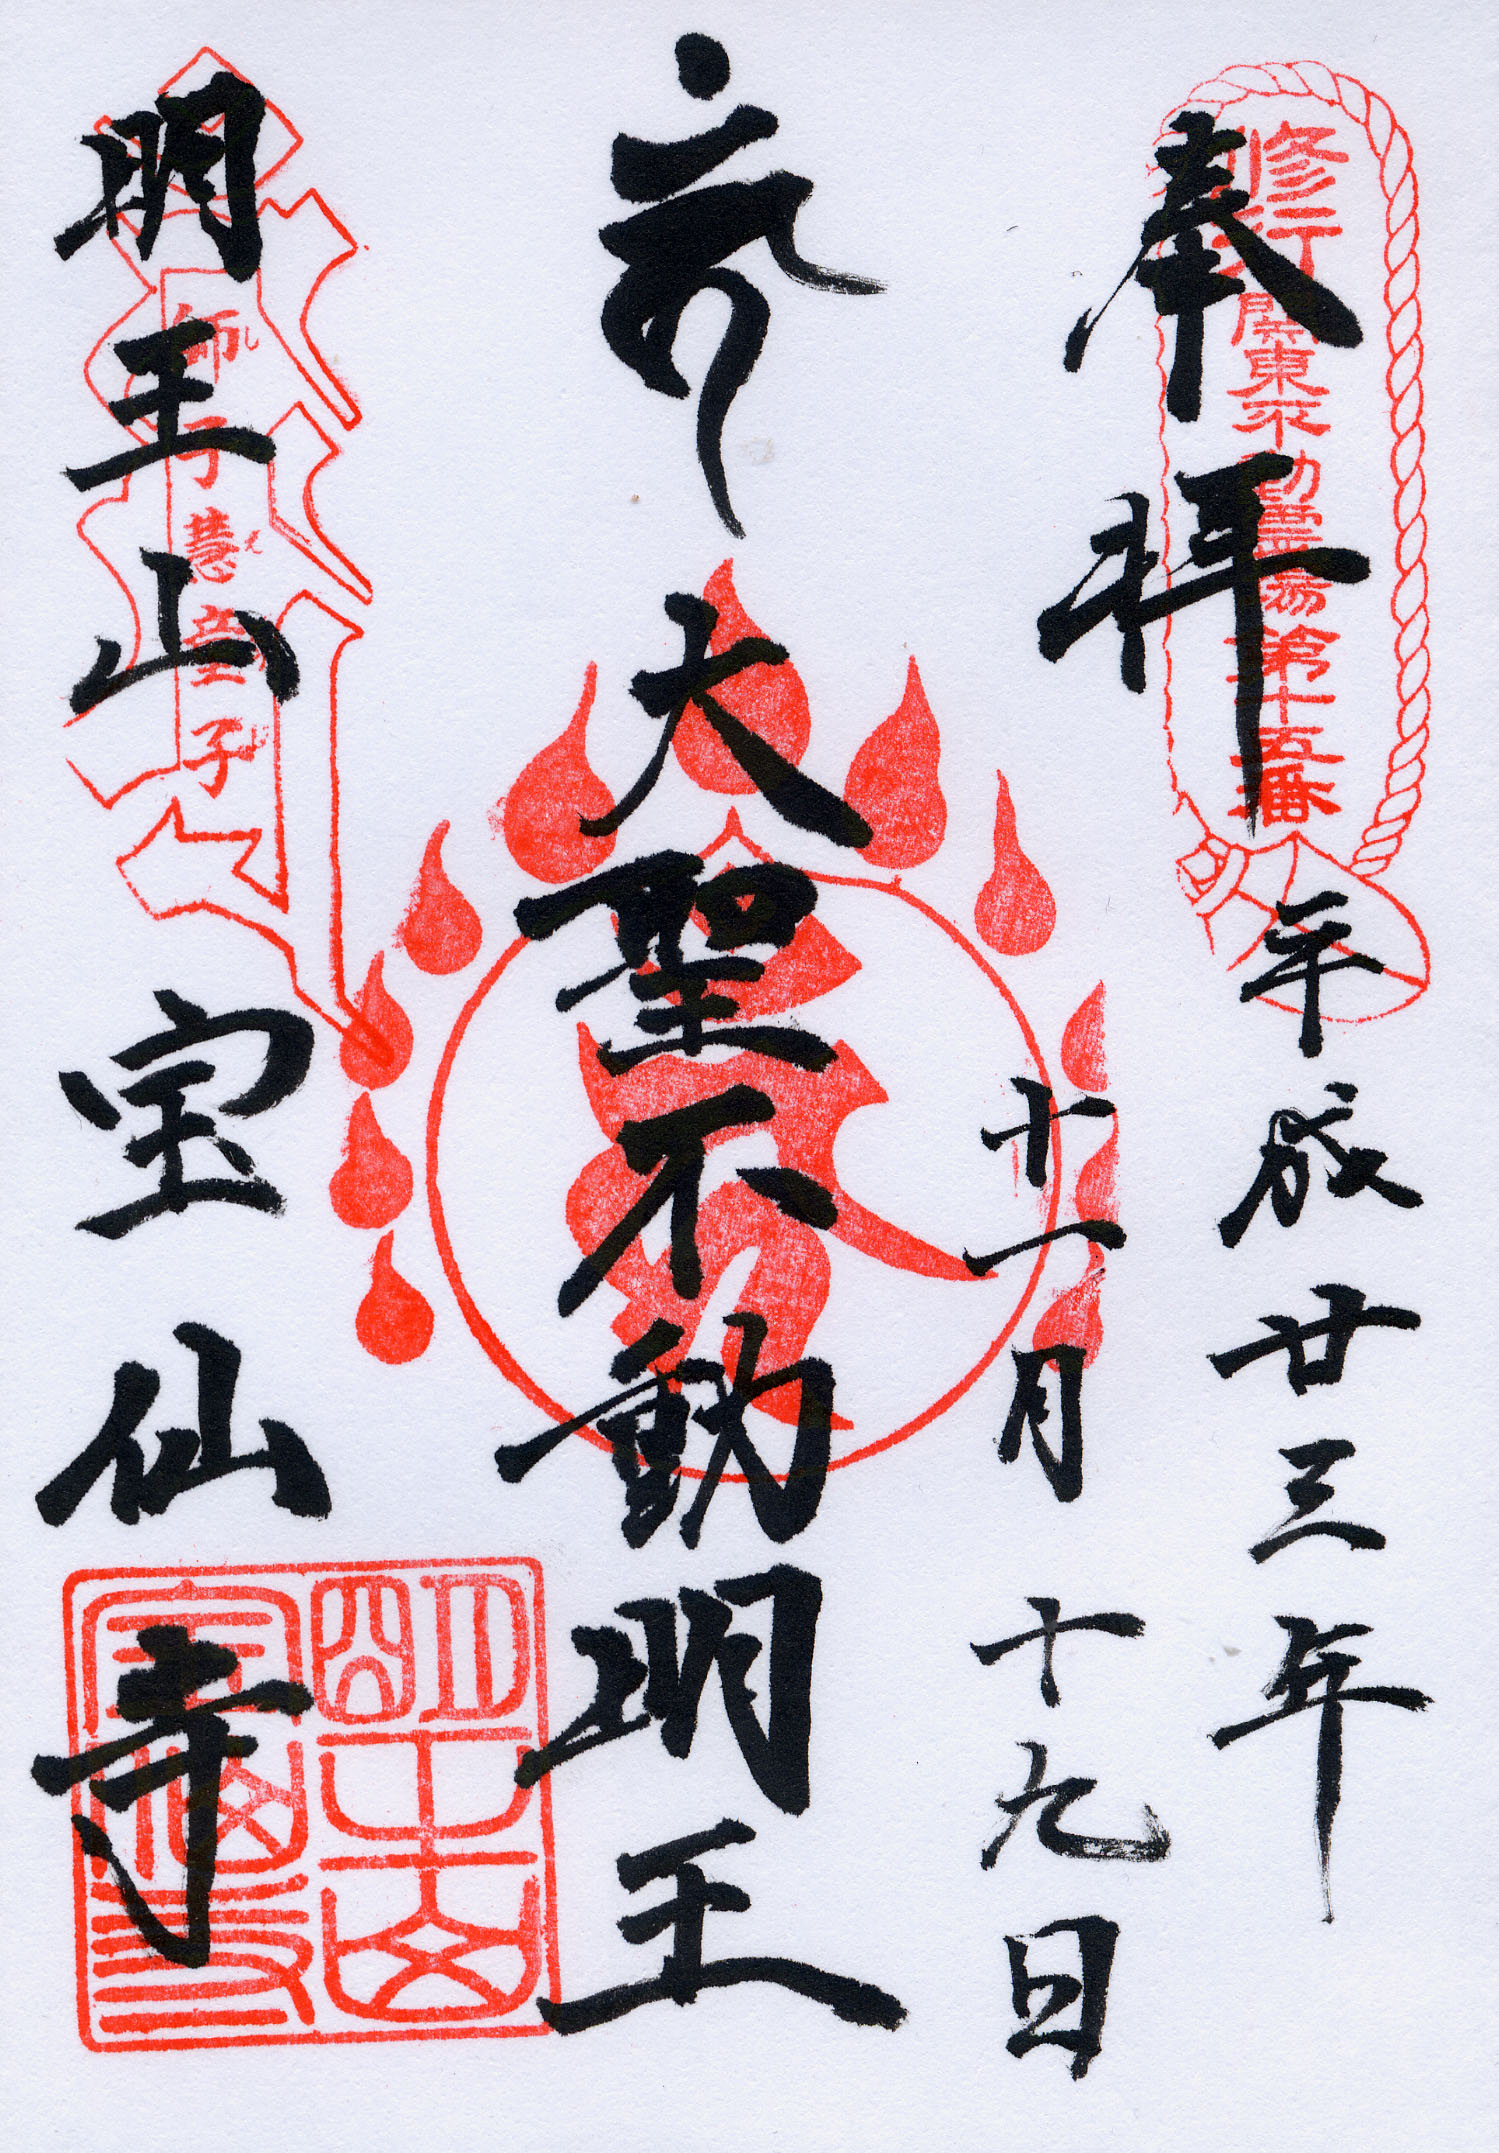 奉拝
修行 関東不動霊場第十五番
平成廿三年
十一月十九日
大聖不動明王
明王山 宝仙寺
師子慧童子
明王山
宝仙寺